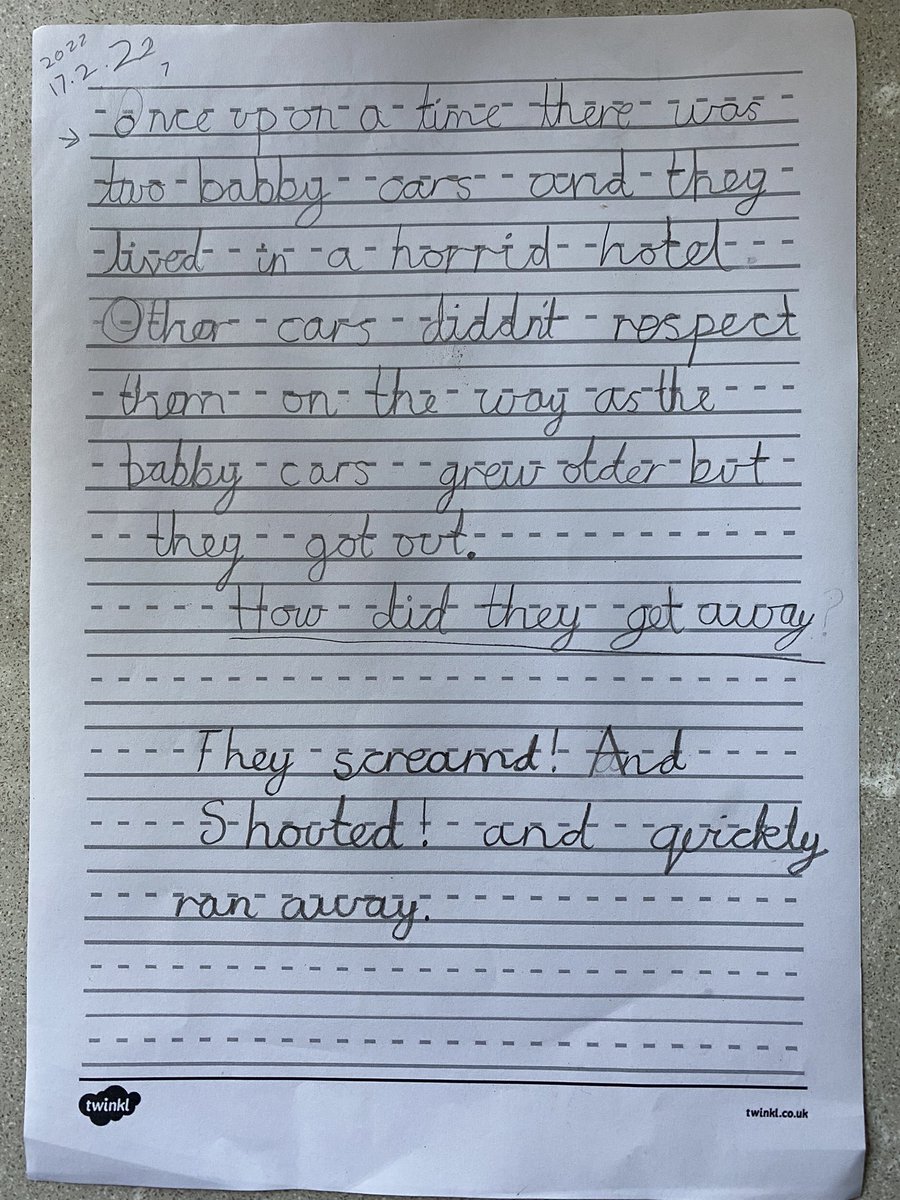 2022
17.2.22
7
→ Once upon a time there was
two babby cars and they
lived in a horrid hotel.
Other cars diddn't respect
them on the way as the
babby cars grew older but
they got out.
How did they get away?
They screamd! And
Shouted! and quickly
ran away.
twinkl
twinkl.co.uk